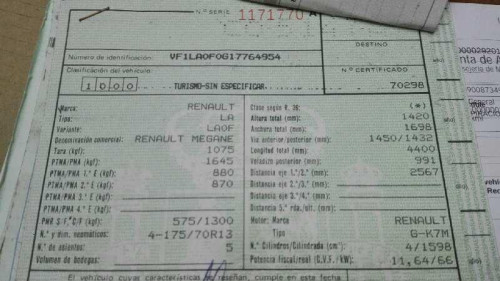 N.º SERIE 1171770 A
DESTINO
Número de identificación: VF1LA0F0G17764954
Clasificación del vehículo: N.º CERTIFICADO
1000 TURISMO-SIN ESPECIFICAR 70298
Marca: RENAULT
Tipo: LA
Variante: LA0F
Denominación comercial: RENAULT MEGANE
Tara (kgf): 1075
PTMA/PMA (kgf): 1645
PTMA/PMA 1.º E (kgf): 880
PTMA/PMA 2.º E (kgf): 870
PTMA/PMA 3.º E (kgf):
PTMA/PMA 4.º E (kgf):
PMR S.F./C.F (kgf): 575/1300
N.º y dim. neumáticos: 4-175/70R13
N.º de asientos: 5
Volumen de bodegas:
(*)
Altura total (mm): 1420
Anchura total (mm): 1698
Vía anterior/posterior (mm): 1450/1432
Longitud total (mm): 4400
Voladizo posterior (mm): 991
Distancia eje 1.º/2.º (mm): 2567
Distancia eje 2.º/3.º (mm):
Distancia eje 3.º/4.º (mm):
Motor: Marca RENAULT
Tipo G-K7M
N.º Cilindros/Cilindrada (cm³): 4/1598
Potencia fiscal/real (C.V.F./kW): 11,64/66
El vehículo cuyas características se reseñan, cumple en esta fecha